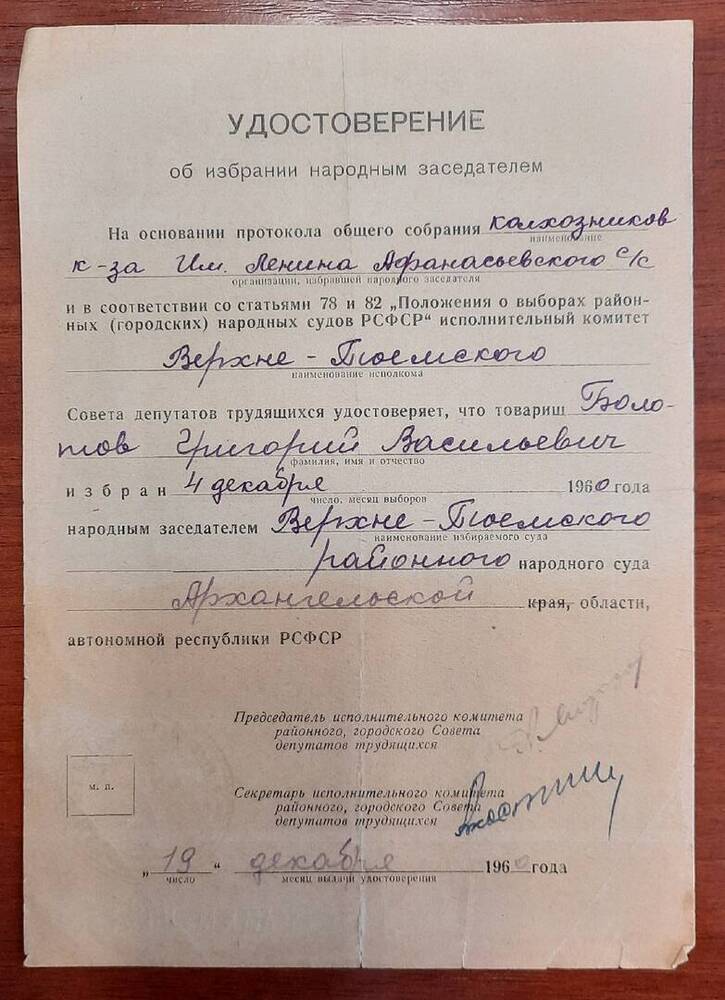 УДОСТОВЕРЕНИЕ
об избрании народным заседателем
На основании протокола общего собрания колхозников
наименование
к-за Им. Ленина Афанасьевского с/с
организации, избравшей народного заседателя
и в соответствии со статьями 78 и 82 „Положения о выборах район-
ных (городских) народных судов РСФСР“ исполнительный комитет
Верхне-Тоемского
наименование исполкома
Совета депутатов трудящихся удостоверяет, что товарищ Боло-
тов Григорий Васильевич
фамилия, имя и отчество
избран 4 декабря 1960 года
число, месяц выборов
народным заседателем Верхне-Тоемского
наименование избираемого суда
районного народного суда
Архангельской края, области,
автономной республики РСФСР
Председатель исполнительного комитета
районного, городского Совета
депутатов трудящихся
м. п.
Секретарь исполнительного комитета
районного, городского Совета
депутатов трудящихся
„19“ декабря 1960 года
число месяц выдачи удостоверения